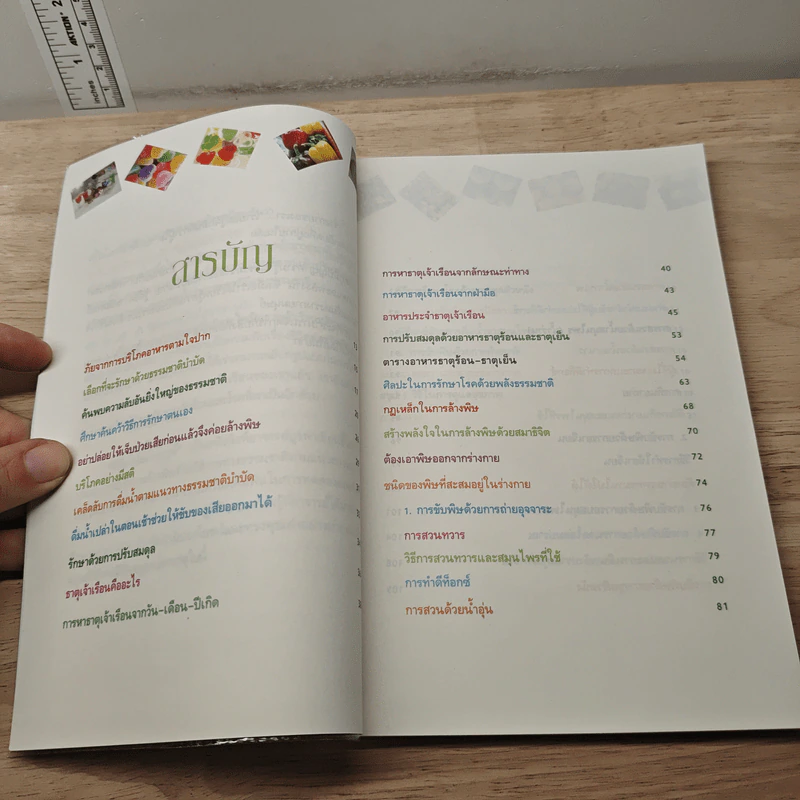 AKTION
inches
1
2
1
2
3
4
5
สารบัญ
ภัยจากการบริโภคอาหารตามใจปาก
เลือกที่จะรักษาด้วยธรรมชาติบำบัด
ค้นพบความลับอันยิ่งใหญ่ของธรรมชาติ
ศึกษาค้นคว้าวิธีการรักษาตนเอง
อย่าปล่อยให้เจ็บป่วยเสียก่อนแล้วจึงค่อยล้างพิษ
บริโภคอย่างมีสติ
เคล็ดลับการดื่มน้ำตามแนวทางธรรมชาติบำบัด
ดื่มน้ำเปล่าในตอนเช้าช่วยให้ขับของเสียออกมาได้
รักษาด้วยการปรับสมดุล
ธาตุเจ้าเรือนคืออะไร
การหาธาตุเจ้าเรือนจากวัน-เดือน-ปีเกิด
การหาธาตุเจ้าเรือนจากลักษณะท่าทาง 40
การหาธาตุเจ้าเรือนจากฝ่ามือ 43
อาหารประจำธาตุเจ้าเรือน 45
การปรับสมดุลด้วยอาหารธาตุร้อนและธาตุเย็น 53
ตารางอาหารธาตุร้อน-ธาตุเย็น 54
ศิลปะในการรักษาโรคด้วยพลังธรรมชาติ 63
กฎเหล็กในการล้างพิษ 68
สร้างพลังใจในการล้างพิษด้วยสมาธิจิต 70
ต้องเอาพิษออกจากร่างกาย 72
ชนิดของพิษที่สะสมอยู่ในร่างกาย 74
1. การขับพิษด้วยการถ่ายอุจจาระ 76
การสวนทวาร 77
วิธีการสวนทวารและสมุนไพรที่ใช้ 79
การทำดีท็อกซ์ 80
การสวนด้วยน้ำอุ่น 81